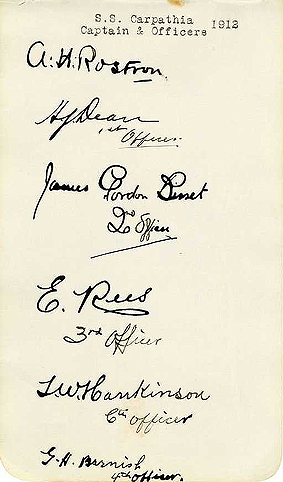 S.S. Carpathia 1912
Captain & Officers
A.H. Rostron.
H J Dean
1st Officer.
James Gordon Bisset
2nd Officer
E. Rees
3rd Officer
T.W. Hankinson
6th officer
G. H. Barnish
4th officer.